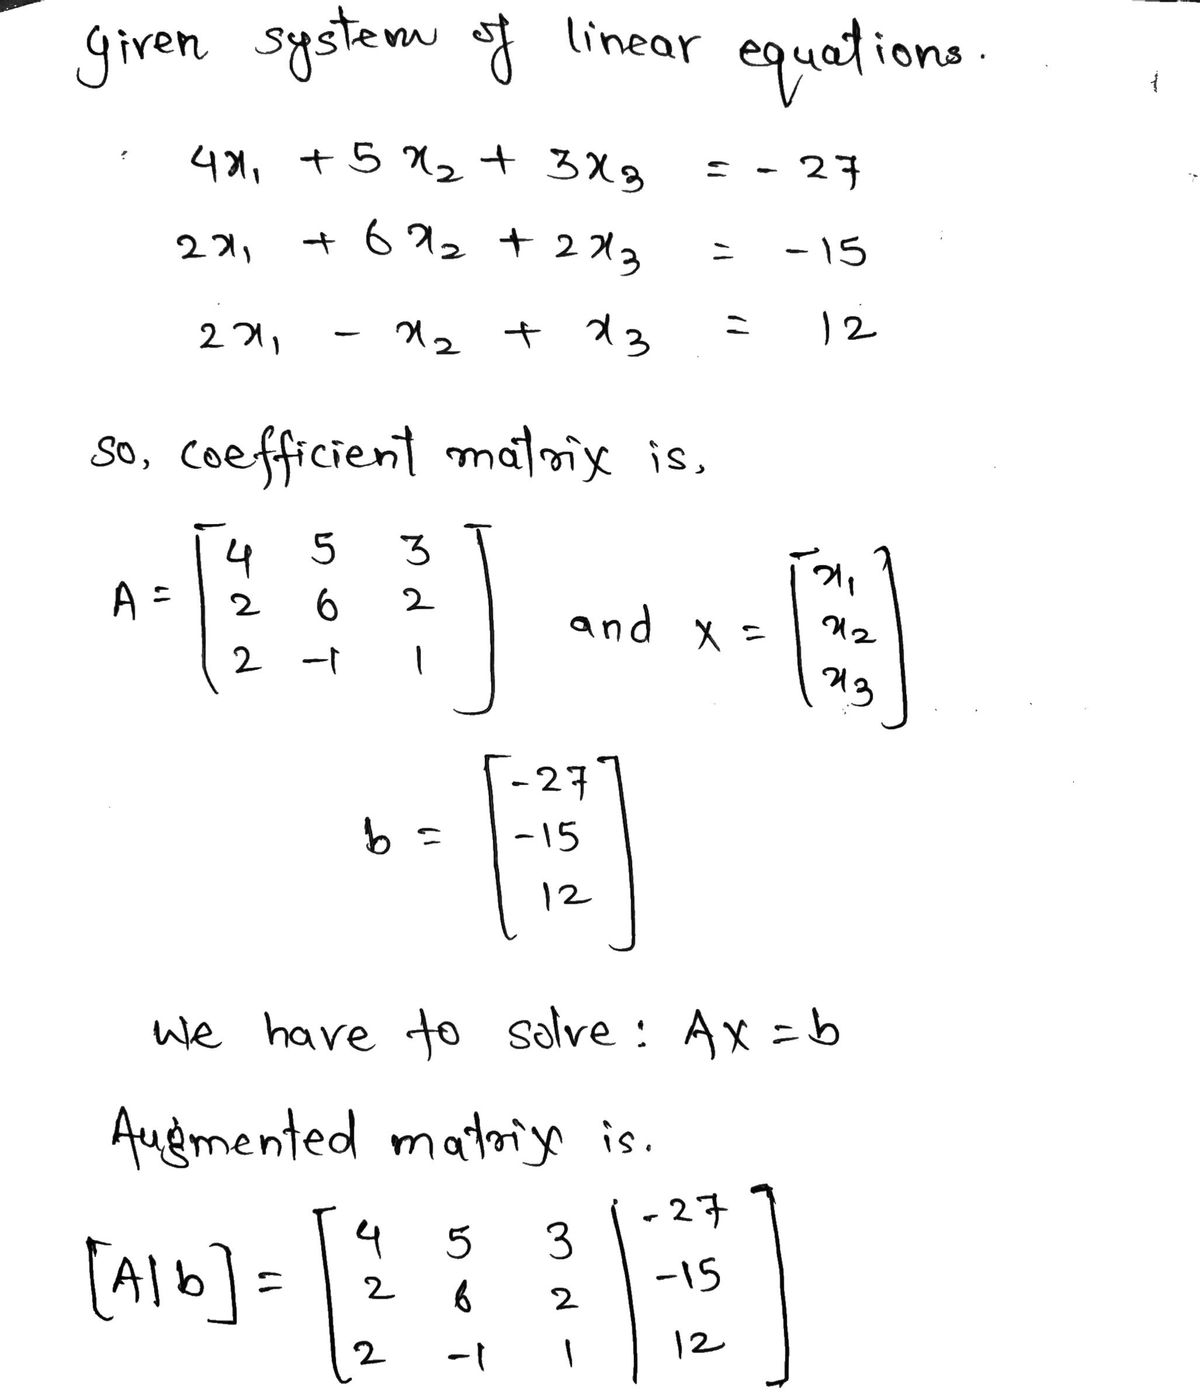 given system of linear equations.
4x₁ + 5x₂ + 3x₃ = -27
2x₁ + 6x₂ + 2x₃ = -15
2x₁ - x₂ + x₃ = 12
so, coefficient matrix is,
A = [4 5 3
2 6 2
2 -1 1] and x = [x₁
x₂
x₃]
b = [-27
-15
12]
we have to solve : Ax = b
Augmented matrix is.
[A|b] = [4 5 3 | -27
2 6 2 | -15
2 -1 1 | 12]